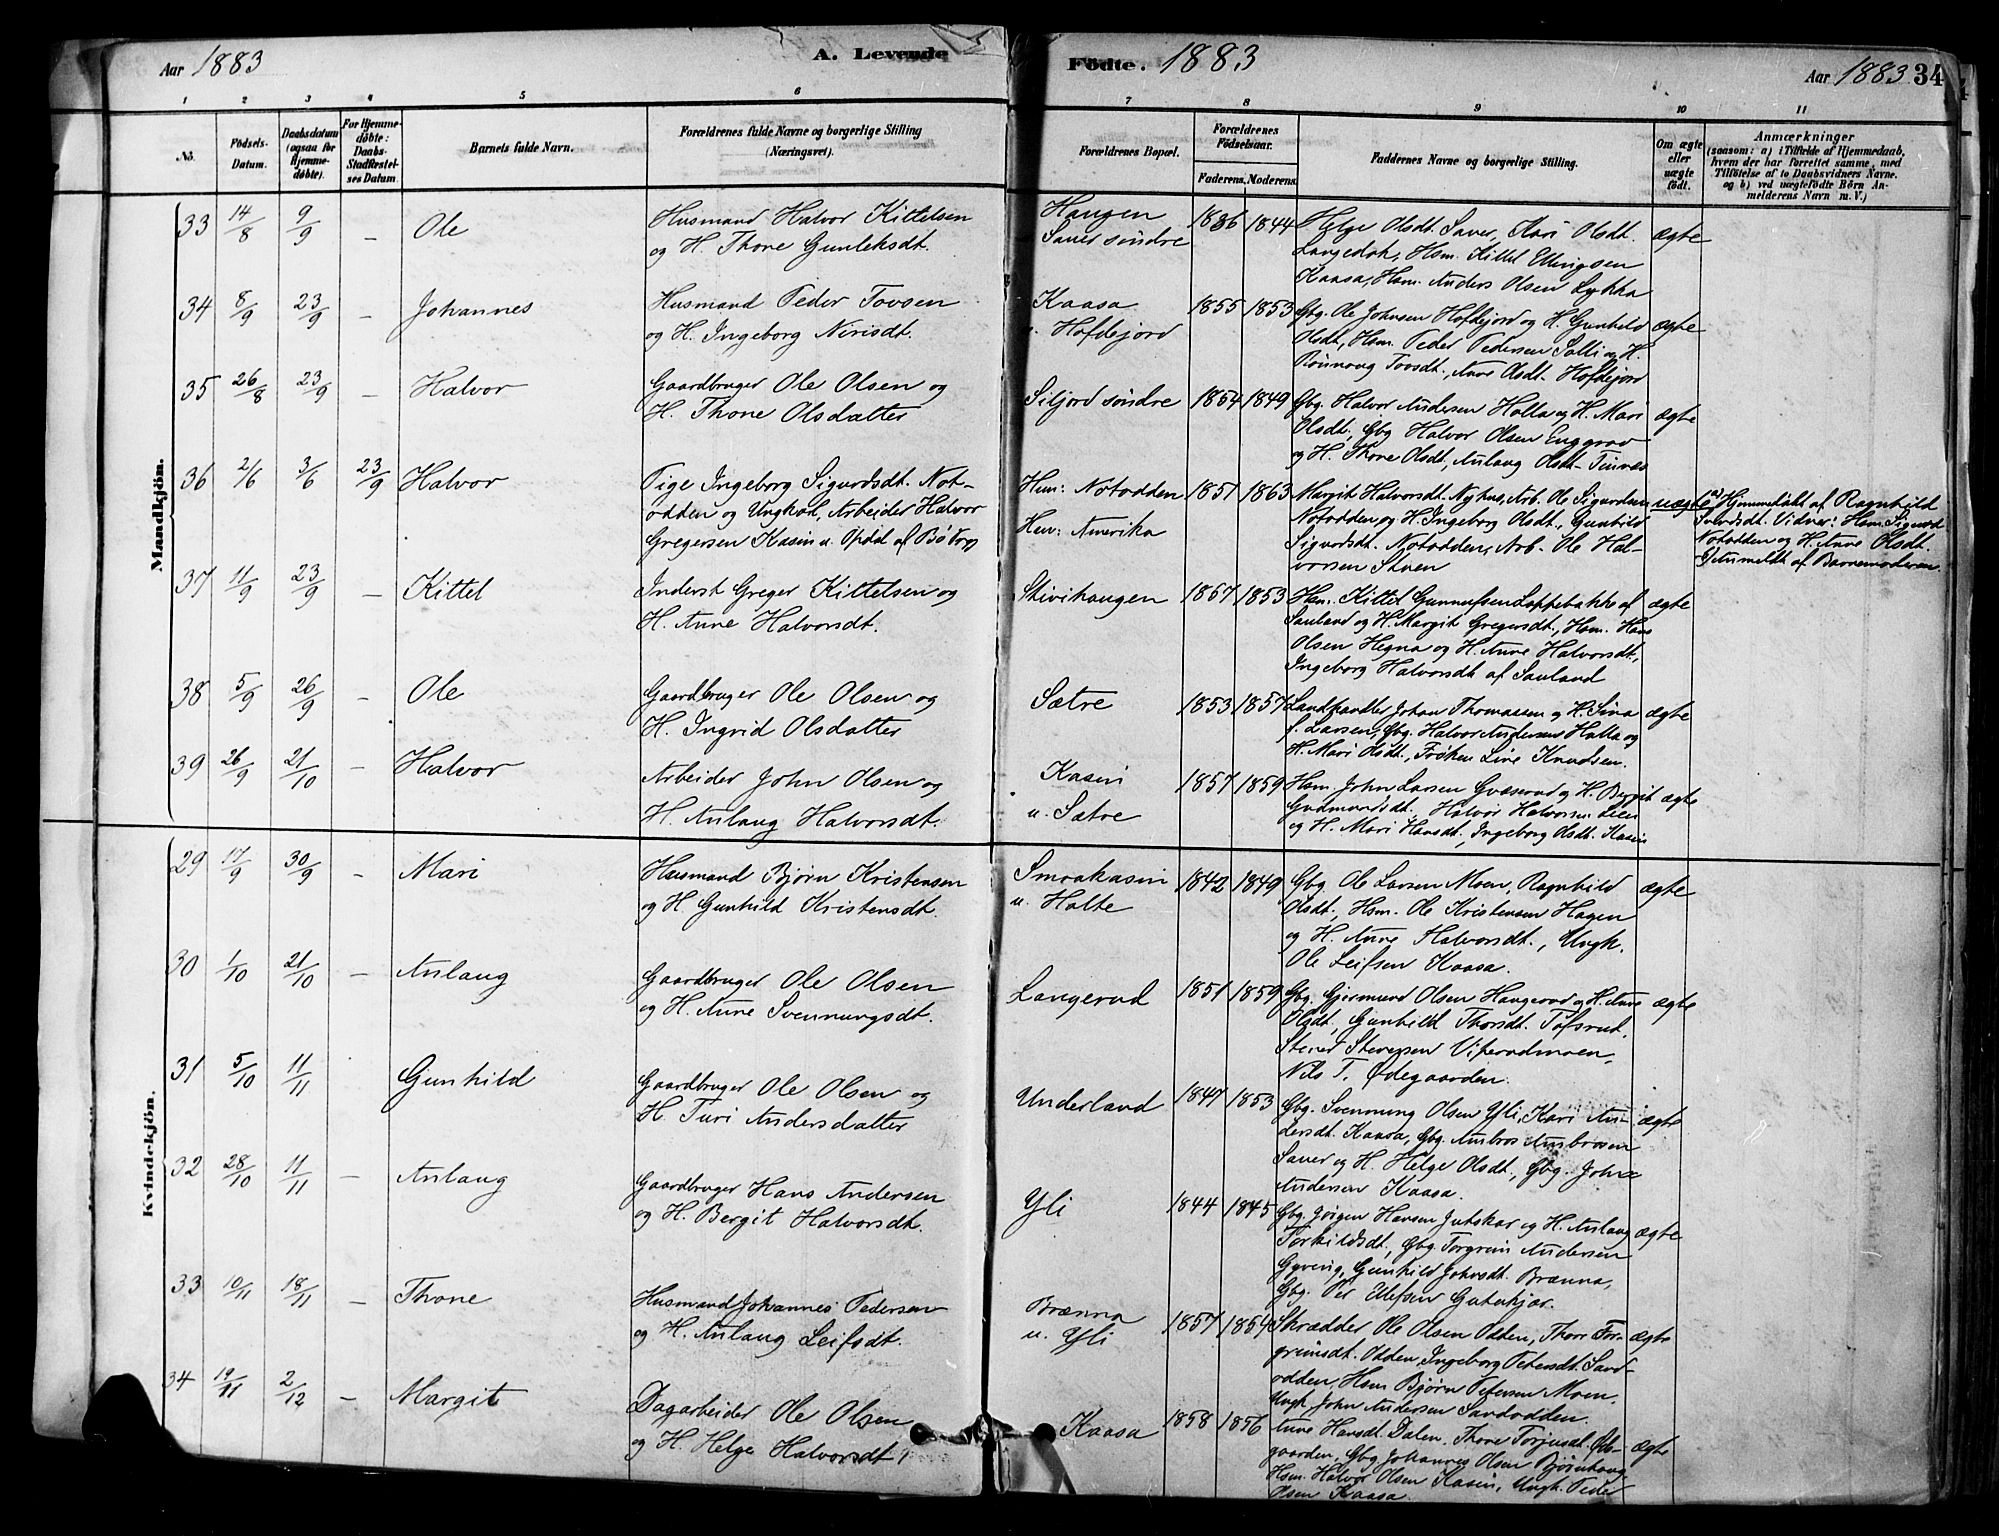 Aar 1883
A. Levende
Födte. 1883
Aar 1883 34
1 2 3 4 5 6 7 8 9 10 11
No.
Födsels-Datum.
Daabsdatum (ogsaa for Hjemmedöbte).
For Hjemmedöbte: Daabs-Stadfæstelses Datum.
Barnets fulde Navn.
Forældrenes fulde Navne og borgerlige Stilling
(Næringsvei).
Forældrenes Bopæl.
Forældrenes Födselsaar.
Faderens. Moderens.
Faddernes Navne og borgerlige Stilling.
Om ægte eller uægte födt.
Anmærkninger
(saasom: a) i Tilfælde af Hjemmedaab,
hvem der har forrettet samme, med
Tilföielse af to Daabsvidners Navne.
og b) ved uægtefödte Börn An-
melderens Navn m. V.)
Mandkjön.
33 14/8 9/9 - Ole
Husmand Halvor Kittelsen
og H. Thone Gunleksdt.
Haugen
Sauer söndre
1836 1844
Helge Olsdt. Sauer, Kari Olsdt.
Langedok, Hsm. Kittel Ellingsen
Kaasa, Hsm. Anders Olsen Lykka
ægte
34 8/9 23/9 - Johannes
Husmand Peder Tovsen
og H. Ingeborg Nirisdt.
Kaasa
u. Hofdejord
1855 1853
Gbg. Ole Johnsen Hofdejord og H. Gunhild
Olsdt, Hsm. Peder Pedersen Solli og H.
Rönnoug Tovsdt., Anne Olsdt. Hofdejord
ægte
35 26/8 23/9 - Halvor
Gaardbruger Ole Olsen og
H. Thone Olsdatter
Siljord söndre
1854 1849
Gbg. Halvor Andersen Holla og H. Mari
Olsdt, Gbg Halvor Olsen Enggrav
og H. Thone Olsdt, Aslaug Olsdt. Tinnes
ægte
36 2/6 3/6 23/9 Halvor
Pige Ingeborg Sigurdsdt. Not-
odden og Ungkarl, Arbeider Halvor
Gregersen Kasin u. Opdal af Bö
Hun: Notodden
Han: Amerika
1851 1863
Margit Halvorsdt. Nyhus, Arb. Ole Sigurdsen
Notodden og H. Ingeborg Olsdt, Gunhild
Sigurdsdt. Notodden, Arb. Ole Hal-
vorsen Stuen
uægte
a) Hjemmedöbt af Ragnhild
Vidner: Hsm. Sigurd
Notodden og H. Anne Olsdt.
b) Anmeldt af Barnemoderen.
37 11/9 23/9 - Kittel
Inderst Greger Kittelsen og
H. Anne Halvorsdt.
Stivihaugen
1857 1853
Hsm. Kittel Gunnulfsen Loppebakke af
Sauland og H. Margit Gregersdt., Hsm. Hans
Olsen Hegna og H. Anne Halvorsdt,
Ingeborg Halvorsdt af Sauland
ægte
38 5/9 26/9 - Ole
Gaardbruger Ole Olsen og
H. Ingrid Olsdatter
Sætre
1853 1857
Landhandler Johan Thomassen og H. Sina
f. Larsen, Gbg. Halvor Andersen Holla og
H. Mari Olsdt, Fröken Line Knudsen.
ægte
39 26/9 21/10 - Halvor
Arbeider John Olsen og
H. Aslaug Halvorsdt.
Kasin
u. Sætre
1857 1859
Hsm. John Larsen Gvaserud og H. Bergit
Gudmundsdt. Halvor Halvorsen Lien
og H. Mari Hansdt, Ingeborg Olsdt. Kasin
ægte
Kvindekjön.
29 17/9 30/9 - Mari
Husmand Björn Kristensen
og H. Gunhild Kristensdt.
Smaakasin
u. Holte
1842 1849
Gbg. Ole Larsen Moen, Ragnhild
Olsdt., Hsm. Ole Kristensen Hagen
og H. Anne Halvorsdt., Ungk.
Ole Leifsen Kaasa.
ægte
30 1/10 21/10 - Aslaug
Gaardbruger Ole Olsen
og H. Anne Svennungsdt.
Langerud
1851 1859
Gbg. Gjermund Olsen Haugerud og H. Anne
Olsdt, Gunhild Thorsdt. Tofsrud,
Stener Stenersen Viperudmoen,
Nils T. Ödegaarden.
ægte
31 5/10 11/11 - Gunhild
Gaardbruger Ole Olsen og
H. Turi Andersdatter
Underland
1847 1853
Gbg. Svennung Olsen Yli, Kari An-
dersdt. Kaasa, Gbg. Ambros Ambrosen
Sauer og H. Helge Olsdt, Gbg. John
Andersen Kaasa.
ægte
32 28/10 11/11 - Aslaug
Gaardbruger Hans Andersen
og H. Bergit Halvorsdt.
Yli
1844 1845
Gbg. Jörgen Hansen Jutskar og H. Aslaug
Torkildsdt, Gbg. Torgrim Andersen
Gyving, Gunhild Johnsdt. Brænna,
Gbg. Per Ellefsen Gutukjær.
ægte
33 10/11 18/11 - Thone
Husmand Johannes Pedersen
og H. Aslaug Leifsdt.
Brænna
u. Yli
1857 1854
Skrædder Ole Olsen Odden, Thone Tor-
grimsdt. Odden, Ingeborg Petersdt. Sand-
odden, Hsm. Björn Petersen Moen,
Ungk. John Andersen Sandodden.
ægte
34 19/11 2/12 - Margit
Dagarbeider Ole Olsen
og H. Helge Halvorsdt.
Kaasa
1858 1856
Anne Hansdt. Dalen, Thone Torjusdt. Öde-
gaarden, Gbg. Johannes Olsen Björnhaug
Hsm. Halvor Olsen Kasin, Ungk. Peder
Olsen Kaasa.
ægte